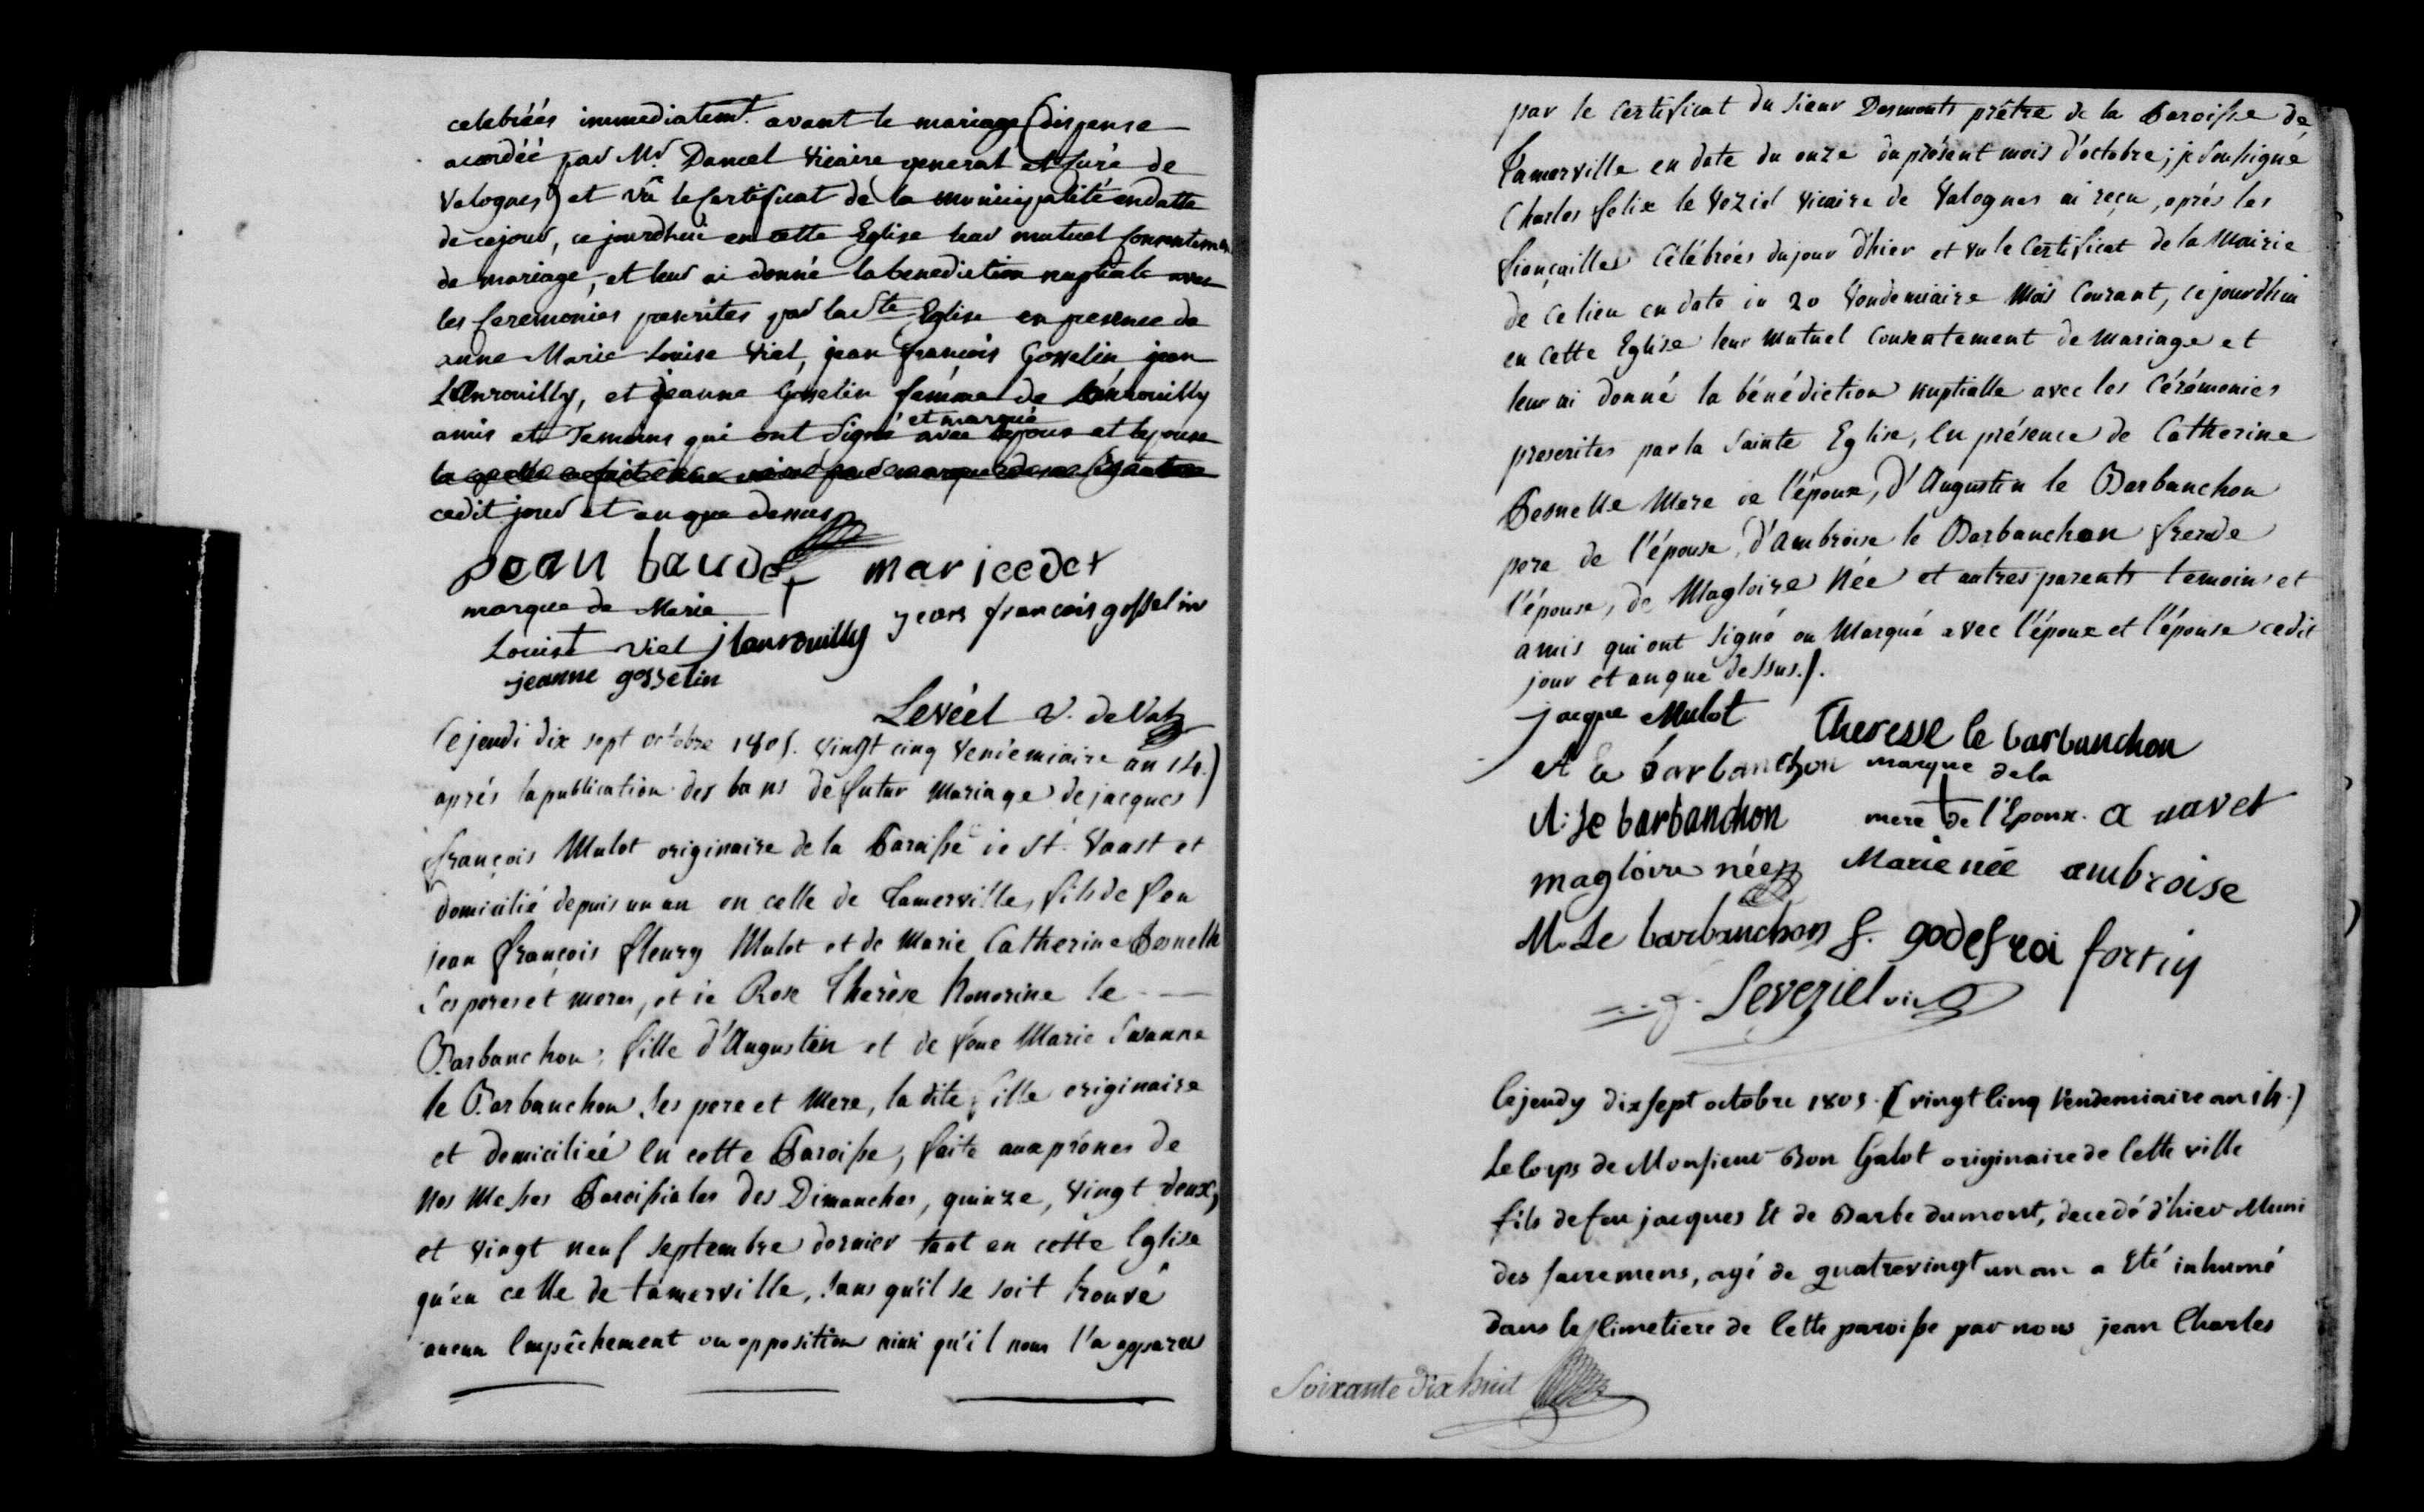 celebréés immediatemt. avant le mariage (dispense
acordéé par Mr. Dancel Vicaire general et Curé de
Valognes) et vû le Certificat de la municipalité en datte
de ce jour, ce jourdhui en cette Eglise leur mutuel Consentement
de mariage, et leur ai donné la benediction nuptiale avec
les Ceremonies prescrites par la Ste Eglise en presence de
anne Marie Louise Viel, jean françois Gosselin, jean
Lenrouilly, et jeanne Gosselin femme de Lenrouilly
amis et Temoins qui ont Signé et marqué avec lepoux et lepouse
cedit jour et an que dessus
jean baudet mariedet
marque de Marie
Louise Viel jlanrouilly jean francois gosselin
jeanne gosselin
Levéel V. de Val
Le jeudi dix sept octobre 1805. vingt cinq Vendémiaire an 14.)
aprés la publication des bans de futur mariage de jacques
françois Mulot originaire de la Paroisse de St. Vaast et
domicilié depuis un an en celle de Tamerville, fils de feu
jean françois fleury Mulot et de Marie Catherine Besnelle
Ses peres et meres, et de Rose Thérèse honorine le
Barbanchon, fille d'Augustin et de féue Marie Susanne
le Barbanchon ses pere et Mere, la dite fille originaire
et domiciliéé En cette Paroisse, faite aux prônes de
Nos Messes Paroissiales des Dimanches, quinze, vingt deux,
et vingt neuf septembre dernier tant en cette Eglise
qu'en celle de tamerville, sans qu'il se soit trouvé
aucun Empêchement ou opposition ainsi qu'il nous l'a apparu
par le Certificat du sieur Desmonts prêtre de la Paroisse de
Tamerville en date du onze du présent mois d'octobre; je soussigné
Charles felix le Veziel Vicaire de Valognes ai reçu, après les
fiançailles Célébrées du jour d'hier et vu le Certificat de la Mairie
de ce lieu en date du 20 Vendemiaire Mois Courant, ce jourdhui
en cette Eglise leur Mutuel Consentement de Mariage et
leur ai donné la bénédiction nuptialle avec les Cérémonies
prescrites par la Sainte Eglise, En présence de Catherine
Besnelle Mere de l'époux, d'Augustin le Barbanchon
pere de l'épouse, d'Ambroise le Barbanchon frere de
l'épouse, de Magloire Née et autres parents temoins et
amis qui ont signé ou Marqué avec l'époux et l'épouse cedit
jour et an que dessus./.
jacque Mulot Theresse le barbanchon
A le barbanchon marque de la
A: le barbanchon mere de l'Epoux. a navet
magloire née Marie née ambroise
M. Le barbanchon f. godefroi fortin
Leveziel vic
le jeudy dix sept octobre 1805. (vingt Cinq Vendemiaire an 14.)
Le Corps de Monsieur Bon Galot originaire de Cette ville
fils de feu jacques Et de Barbe dumont, decedé d'hier Muni
des sacremens, agé de quatrevingt un an a Eté inhumé
dans le Cimetiere de Cette paroisse par nous jean Charles
Soixante dix huit